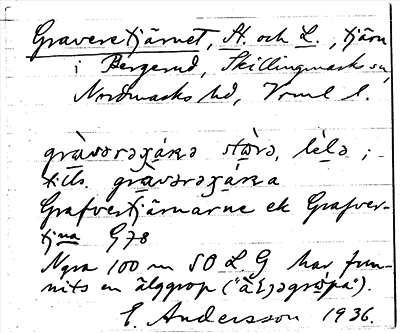 Graveretjärnet, St. och L., tjärn
i Bergerud, Skillingmarks sn,
Nordmarks hd, Vrml l.
gràvərəʒǽɳə stò̄rə, lèlə ;
tills. gràvərəʒǽɳa
Grafvertjärnarne ek Grafver-
tjna G78
Ngra 100 m SO L. G har fun-
nits en älggrop ("ä̀ljəgròpa").
E. Andersson 1936.